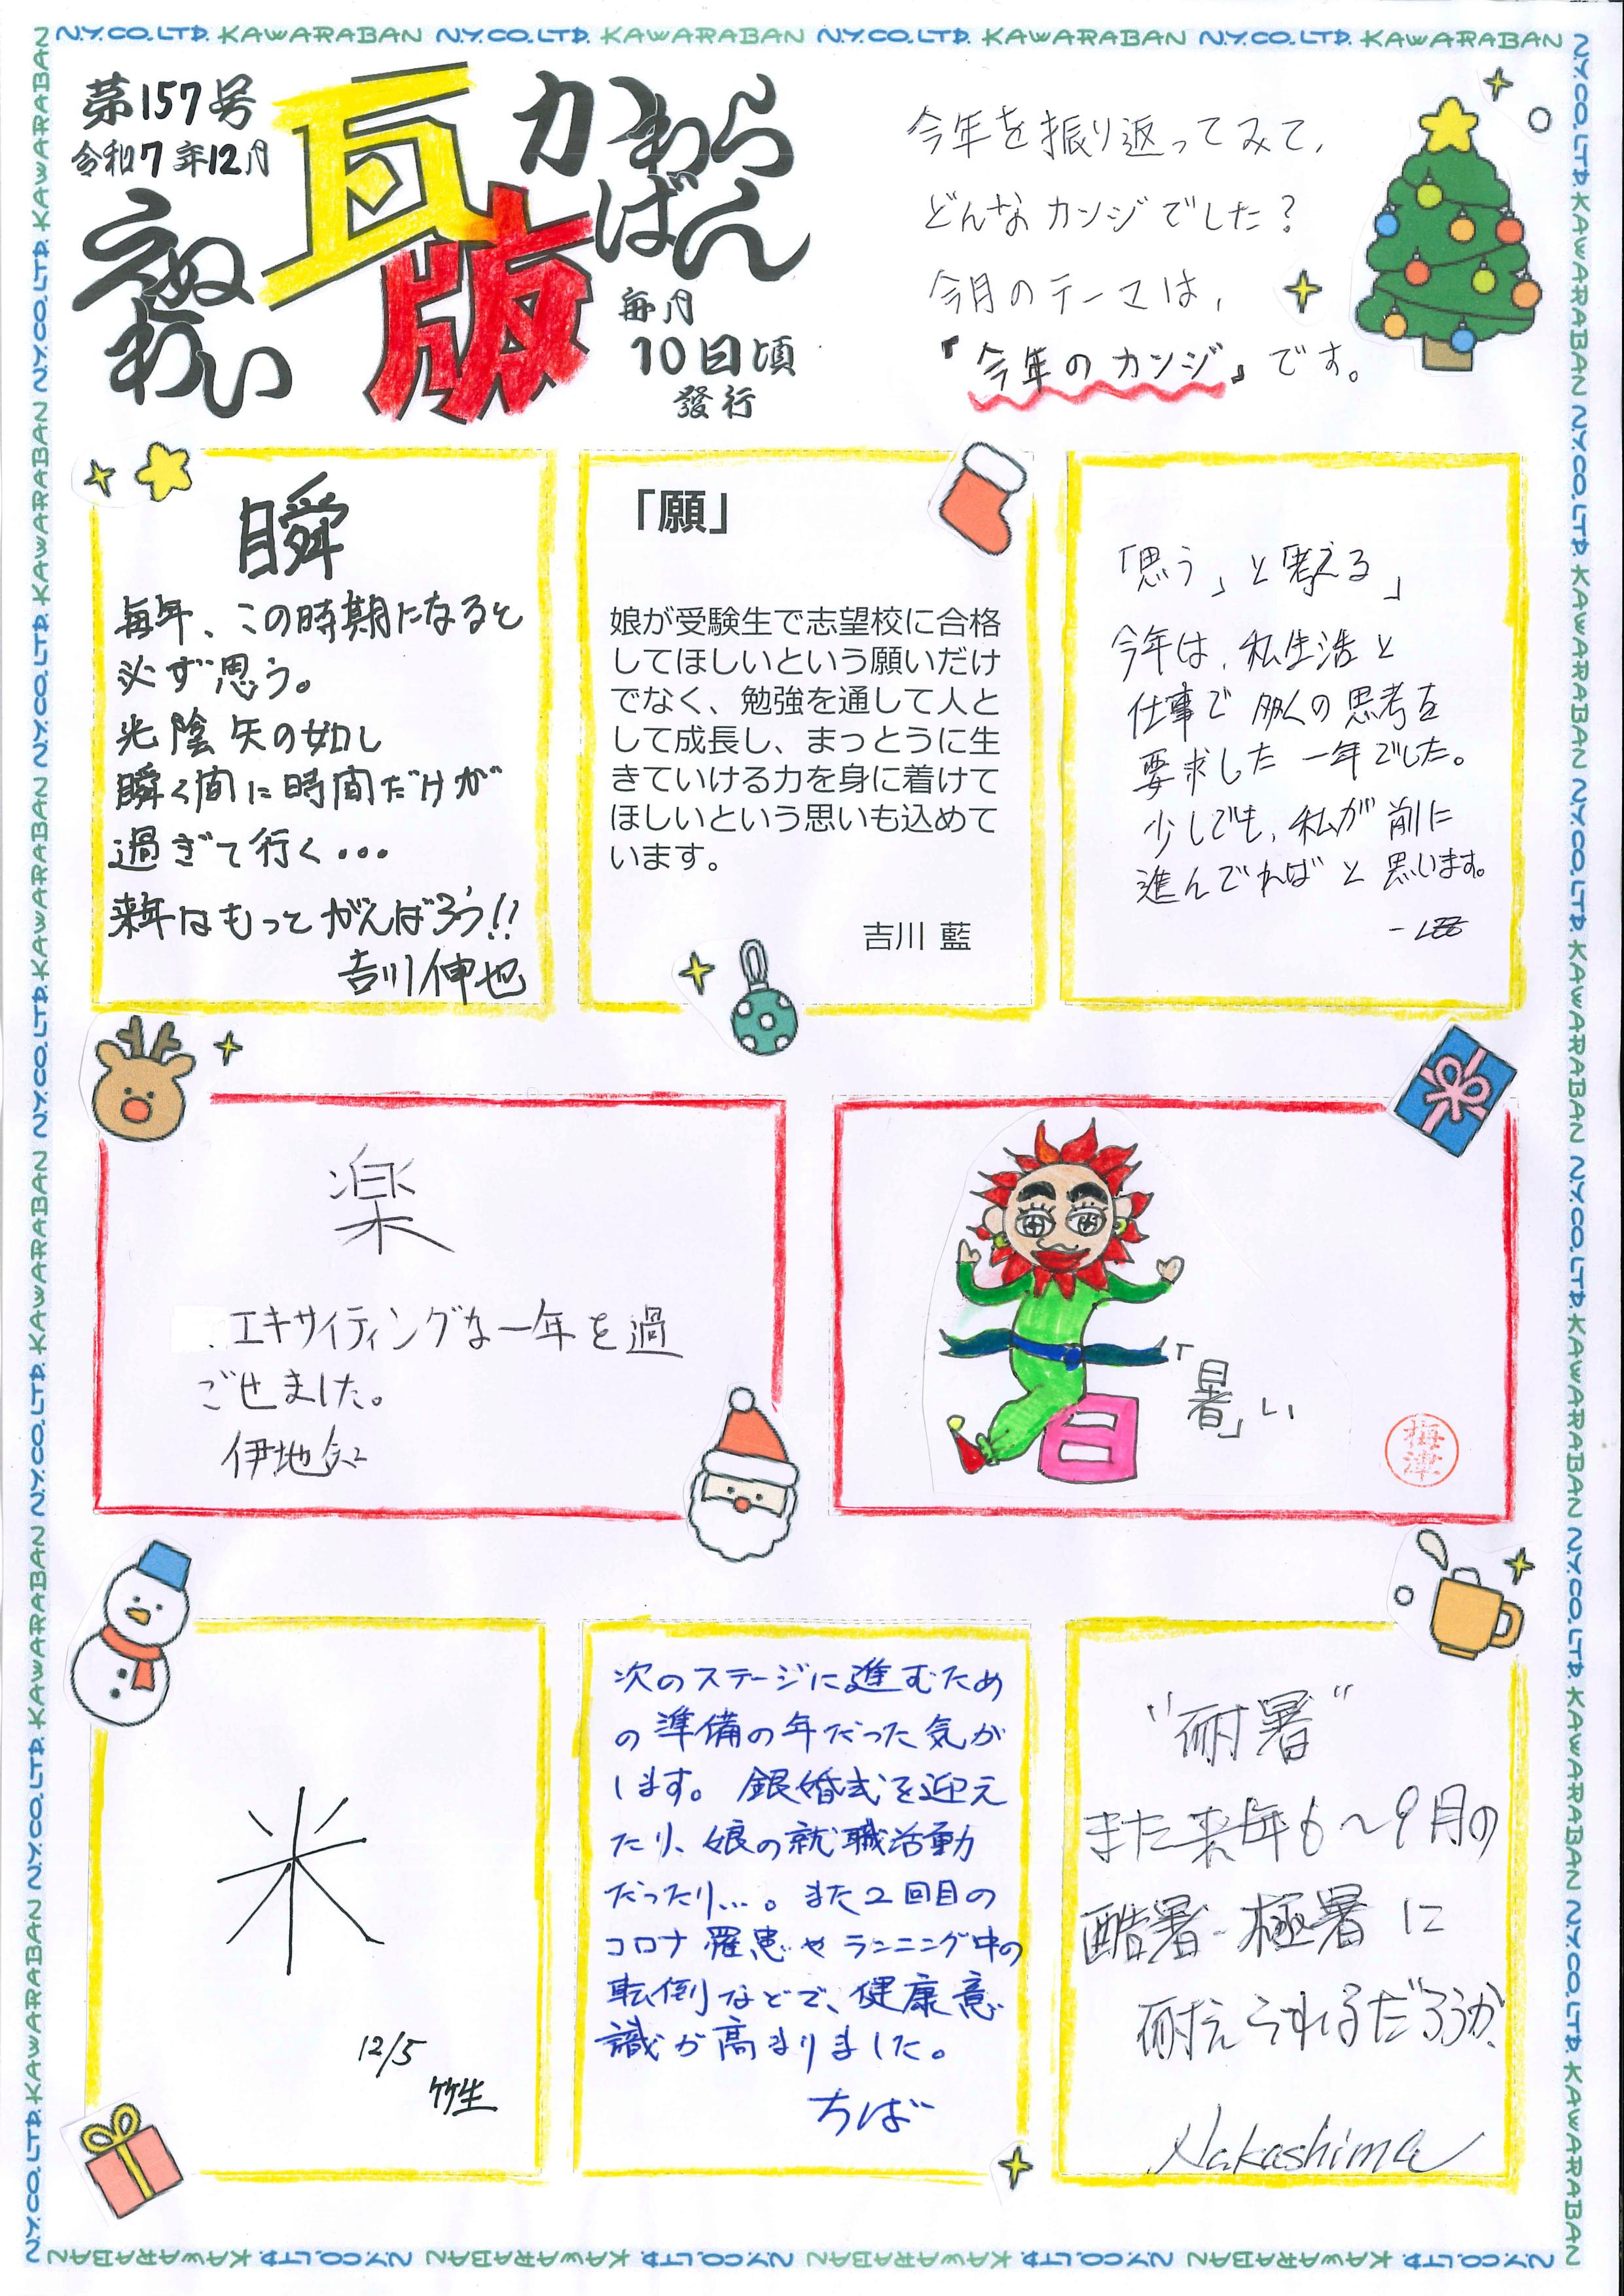 N.Y.CO.LTD. KAWARABAN N.Y.CO.LTD. KAWARABAN N.Y.CO.LTD. KAWARABAN N.Y.CO.LTD. KAWARABAN
第157号
令和7年12月
えぬわい
瓦版
かわらばん
毎月
10日頃
發行
今年を振り返ってみて、
どんなカンジでした?
今月のテーマは、
『今年のカンジ』です。
瞬
毎年、この時期になると
必ず思う。
光陰矢の如し
瞬く間に時間だけが
過ぎて行く...
来年はもってがんばろう!!
吉川伸也
「願」
娘が受験生で志望校に合格
してほしいという願いだけ
でなく、勉強を通して人と
して成長し、まっとうに生
きていける力を身に着けて
ほしいという思いも込めて
います。
吉川 藍
「思う」と考える」
今年は、私生活と
仕事で多くの思考を
要求した一年でした。
少しでも、私が前に
進んでればと思います。
楽
エキサイティングな一年を過
ごせました。
伊地知
「暑」い
日
梅津
米
12/5
竹生
次のステージに進むため
の準備の年だった気が
します。銀婚式を迎え
たり、娘の就職活動
だったり...。また2回目の
コロナ罹患やランニング中の
転倒などで、健康意
識が高まりました。
ちば
"耐暑"
また来年6~9月の
酷暑-極暑に
耐えられるだろうか、
Nakashima